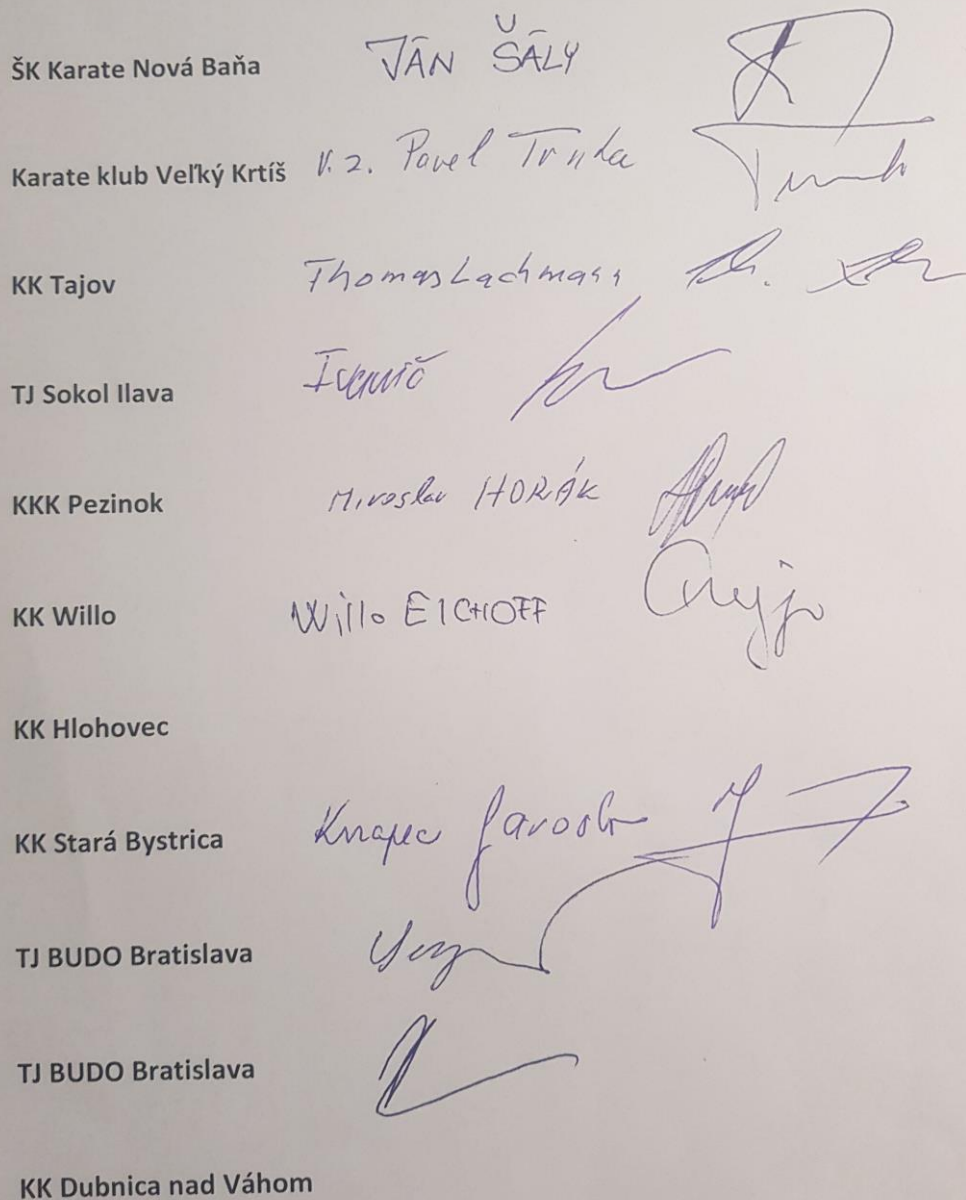 ŠK Karate Nová Baňa JÁN ŠÁLY
Karate klub Veľký Krtíš V.z. Pavel Trnka
KK Tajov Thomas Lachmann
TJ Sokol Ilava
KKK Pezinok Miroslav HORÁK
KK Willo Willo EICHOFF
KK Hlohovec
KK Stará Bystrica Knapec Jaroslav
TJ BUDO Bratislava
TJ BUDO Bratislava
KK Dubnica nad Váhom